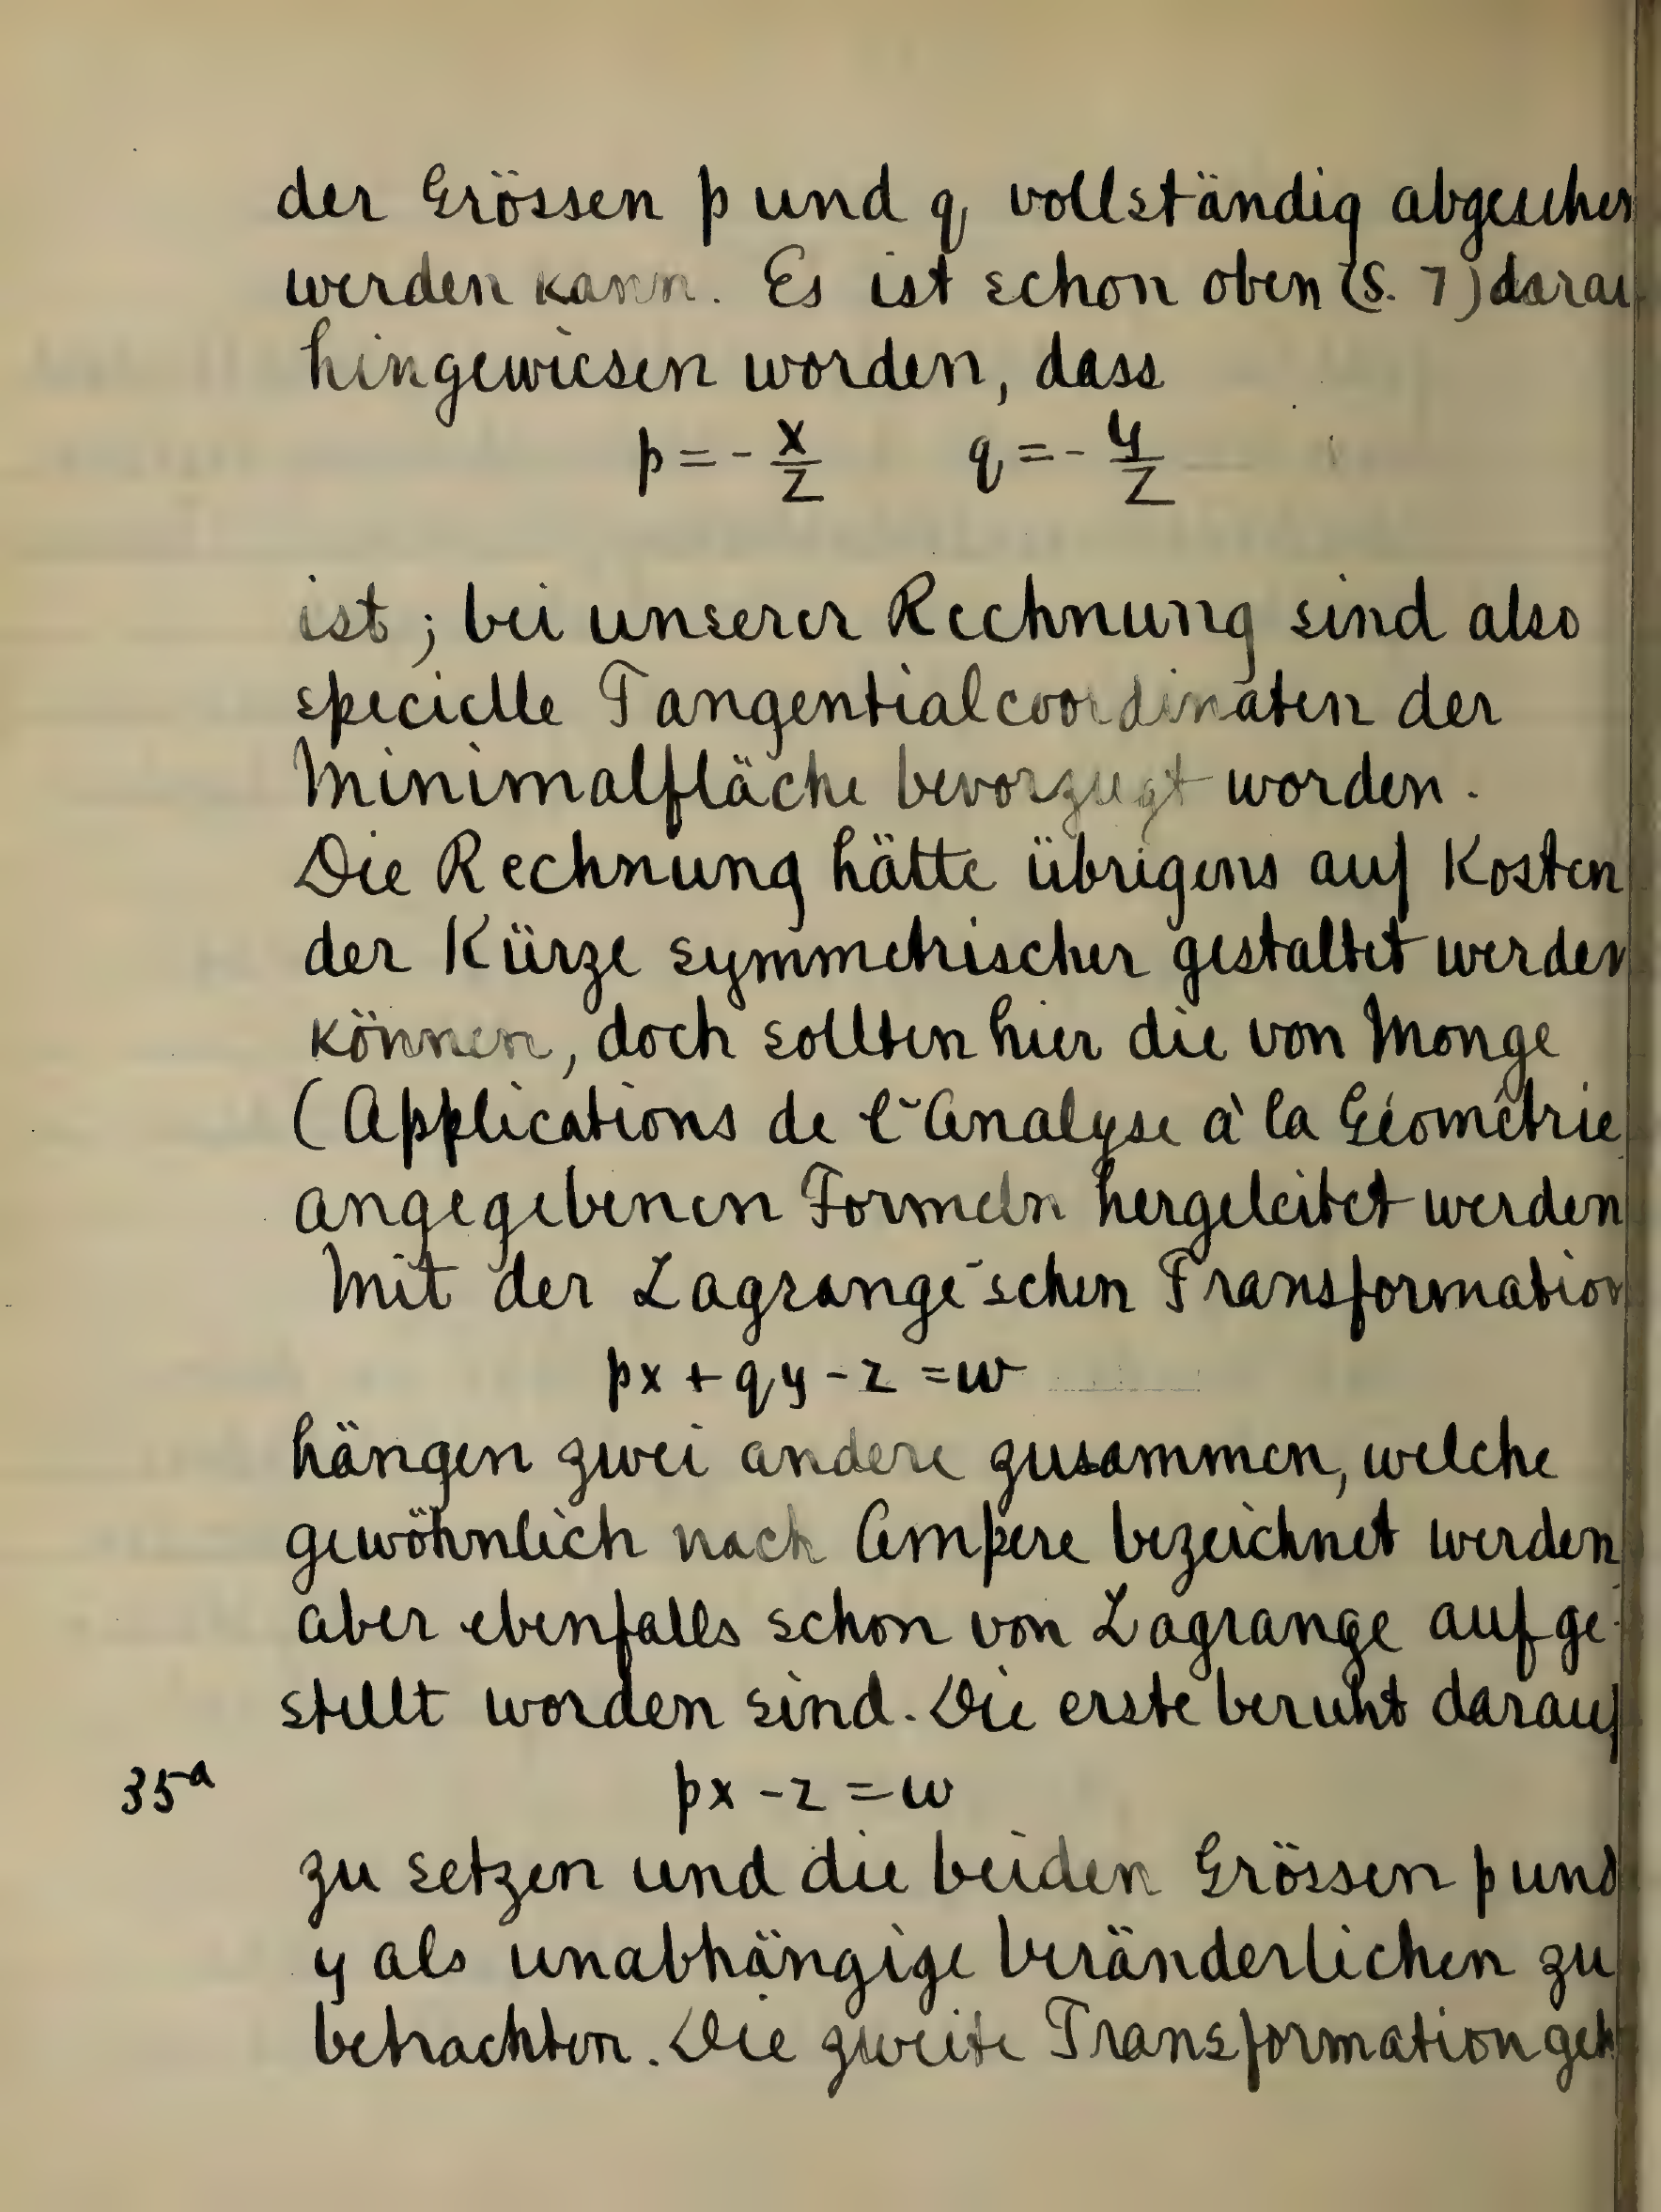 der Grössen p und q vollständig abgesehen
werden kann. Es ist schon oben (S. 7) darau
hingewiesen worden, dass
p = - X/Z q = - Y/Z
ist; bei unserer Rechnung sind also
specielle Tangentialcoordinaten der
Minimalfläche bevorzugt worden.
Die Rechnung hätte übrigens auf Kosten
der Kürze symmetrischer gestaltet werden
können, doch sollten hier die von Monge
(Applications de l'Analyse à la Géométrie
angegebenen Formeln hergeleitet werden
Mit der Lagrange'schen Transformation
px + qy - z = w
hängen zwei andere zusammen, welche
gewöhnlich nach Ampere bezeichnet werden
aber ebenfalls schon von Lagrange aufge-
stellt worden sind. Die erste beruht darauf
35a px - z = w
zu setzen und die beiden Grössen p und
y als unabhängige Veränderlichen zu
betrachten. Die zweite Transformation geh